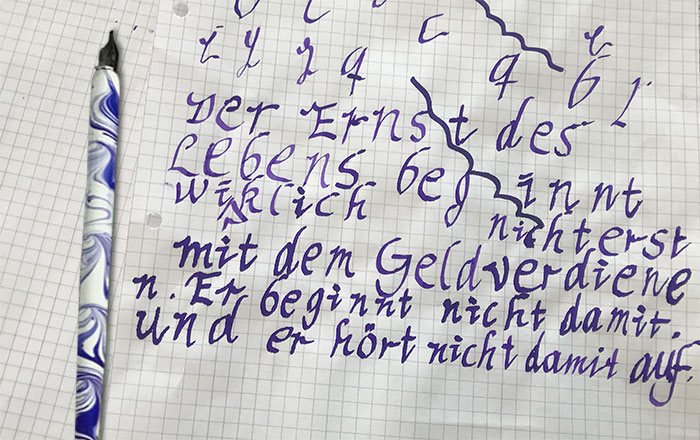 i y z q q b l
Der Ernst des
Lebens beginnt
wirklich nicht erst
mit dem Geldverdiene
n. Er beginnt nicht damit.
und er hört nicht damit auf.